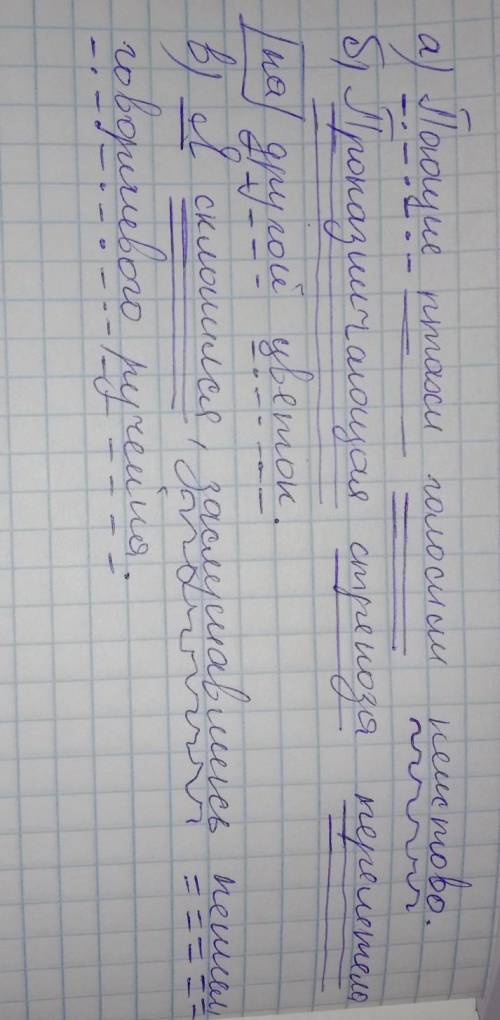 а) Поющие птахи голосили неистово.
б) Проказничающая стрекоза перелетела
[на] другой цветок.
в) Я склонился, заслушавшись пеньем
говорливого ручейка.